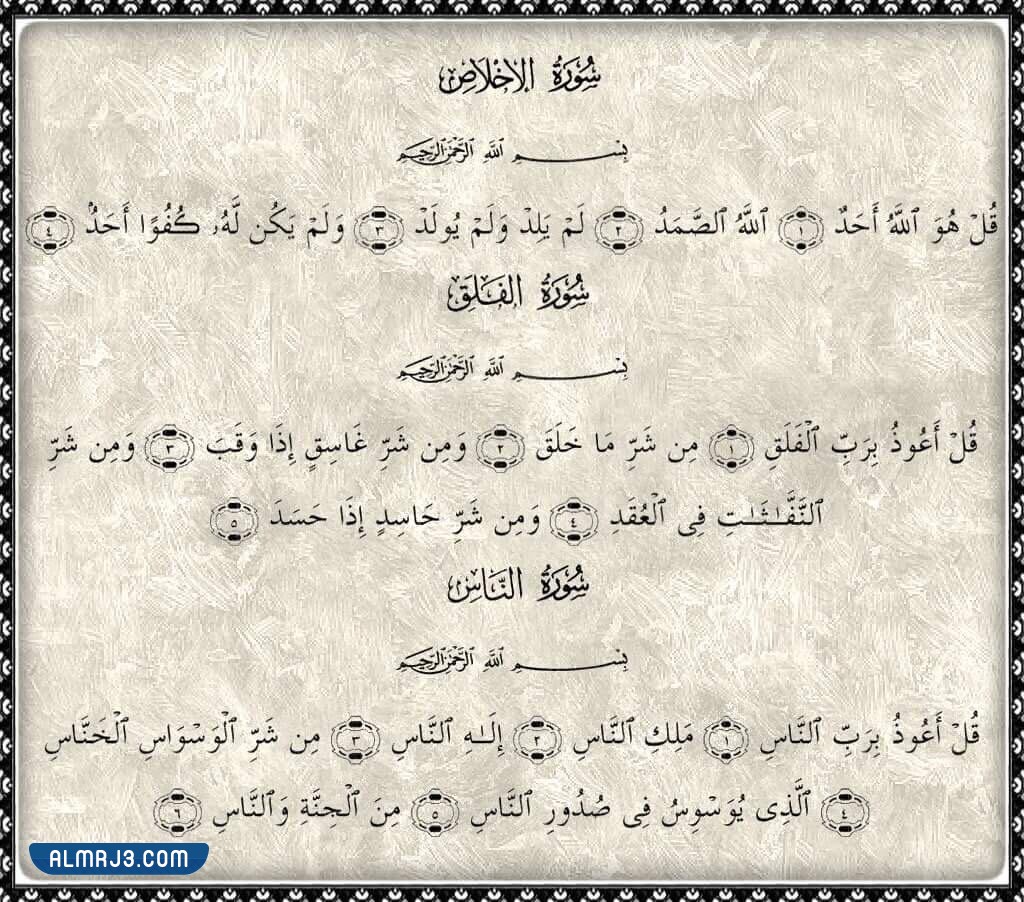 سُورَةُ الإِخْلَاصِ
بِسْمِ ٱللَّهِ ٱلرَّحْمَٰنِ ٱلرَّحِيمِ
قُلْ هُوَ ٱللَّهُ أَحَدٌ ١ ٱللَّهُ ٱلصَّمَدُ ٢ لَمْ يَلِدْ وَلَمْ يُولَدْ ٣ وَلَمْ يَكُن لَّهُۥ كُفُوًا أَحَدٌۢ ٤
سُورَةُ الفَلَقِ
بِسْمِ ٱللَّهِ ٱلرَّحْمَٰنِ ٱلرَّحِيمِ
قُلْ أَعُوذُ بِرَبِّ ٱلْفَلَقِ ١ مِن شَرِّ مَا خَلَقَ ٢ وَمِن شَرِّ غَاسِقٍ إِذَا وَقَبَ ٣ وَمِن شَرِّ
ٱلنَّفَّـٰثَـٰتِ فِى ٱلْعُقَدِ ٤ وَمِن شَرِّ حَاسِدٍ إِذَا حَسَدَ ٥
سُورَةُ النَّاسِ
بِسْمِ ٱللَّهِ ٱلرَّحْمَٰنِ ٱلرَّحِيمِ
قُلْ أَعُوذُ بِرَبِّ ٱلنَّاسِ ١ مَلِكِ ٱلنَّاسِ ٢ إِلَـٰهِ ٱلنَّاسِ ٣ مِن شَرِّ ٱلْوَسْوَاسِ ٱلْخَنَّاسِ
٤ ٱلَّذِى يُوَسْوِسُ فِى صُدُورِ ٱلنَّاسِ ٥ مِنَ ٱلْجِنَّةِ وَٱلنَّاسِ ٦
ALMRJ3.COM